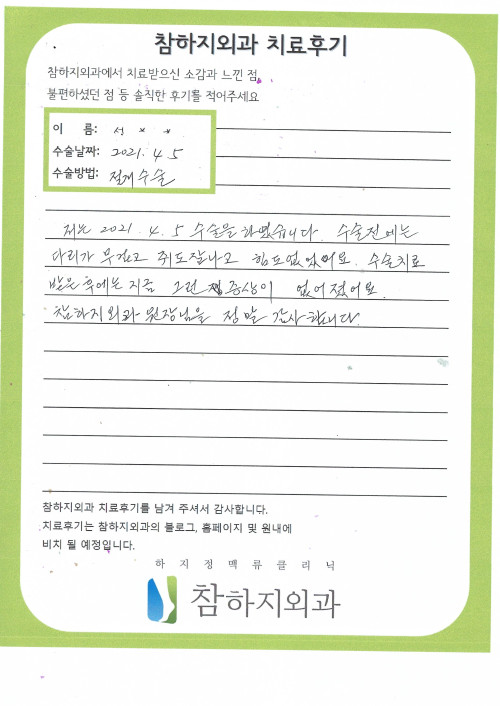 참하지외과 치료후기
참하지외과에서 치료받으신 소감과 느낀 점,
불편하셨던 점 등 솔직한 후기를 적어주세요
이 름: 서 * *
수술날짜: 2021. 4. 5
수술방법: 절개수술
저는 2021. 4. 5 수술을 하였습니다. 수술전에는
다리가 무겁고 쥐도잘나고 힘도없었어요. 수술치료
받은 후에는 지금 그런 증상이 없어졌어요.
참하지외과 원장님을 정말 감사합니다.
참하지외과 치료후기를 남겨 주셔서 감사합니다.
치료후기는 참하지외과의 블로그, 홈페이지 및 원내에
비치 될 예정입니다.
하지정맥류클리닉
참하지외과